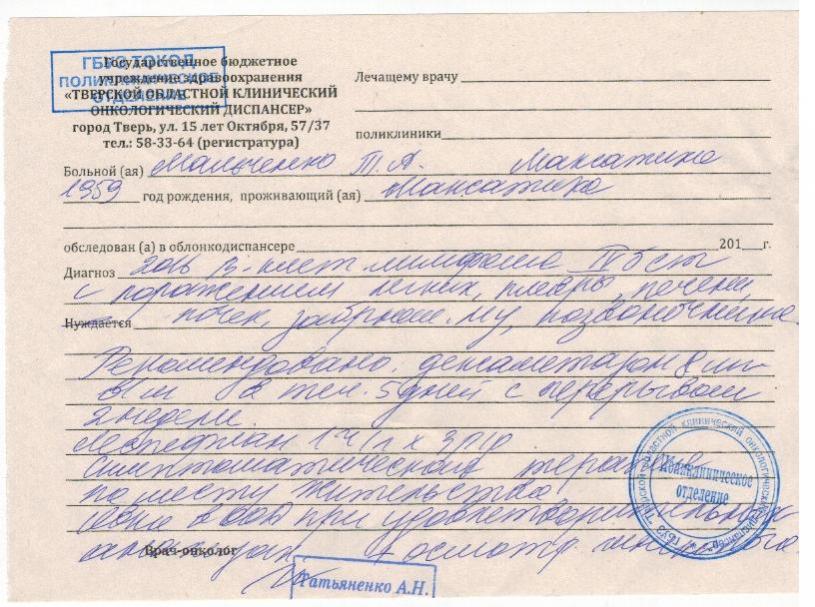 ГБУЗ ТОКОД
ПОЛИКЛИНИЧЕСКОЕ
ОТДЕЛЕНИЕ
Государственное бюджетное
учреждение здравоохранения
«ТВЕРСКОЙ ОБЛАСТНОЙ КЛИНИЧЕСКИЙ
ОНКОЛОГИЧЕСКИЙ ДИСПАНСЕР»
город Тверь, ул. 15 лет Октября, 57/37
тел.: 58-33-64 (регистратура)
Лечащему врачу
поликлиники
Больной (ая) Мальченко Т. А. Максатиха
1959 год рождения, проживающий (ая) Максатиха
обследован (а) в облонкодиспансере 201 г.
Диагноз В-клет лимфома IV б ст
с поражением легких, плевры, печени,
Нуждается почек, забрюш. л/у, позвоночника.
Рекомендовано. дексаметазон 8 мг
в/м в теч. 5 дней с перерывом
2 недели.
Леспефлан 1 ч/л х 3 р/д
симптоматическая терапия
по месту жительства
при удовлетворительных
анализах + осмотр
Врач-онколог
Татьяненко А.Н.
Поликлиническое
отделение